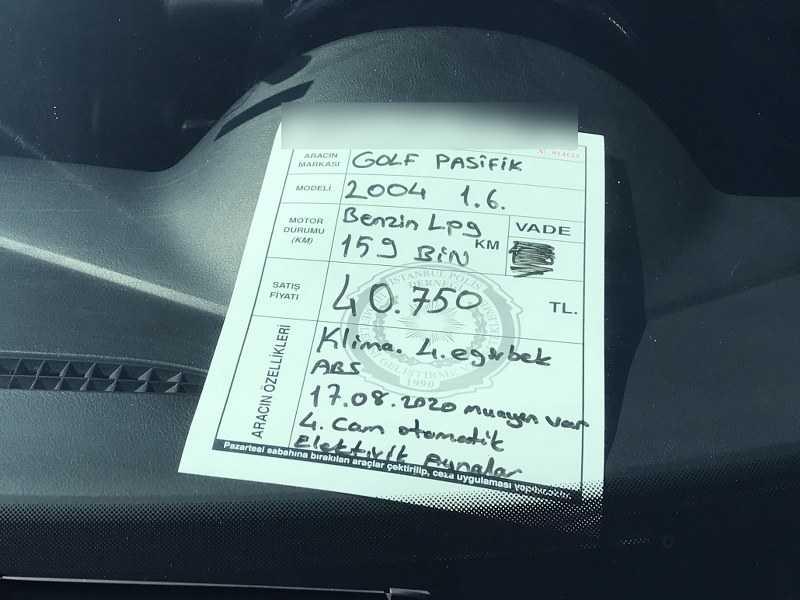 ARACIN MARKASI GOLF PASİFİK
MODELİ 2004 1.6.
MOTOR DURUMU (KM) Benzin Lpg
159 BİN KM
VADE
SATIŞ FİYATI 40.750 TL.
İSTANBUL POLİS
1990
ARACIN ÖZELLİKLERİ
Klima. 4. egırbek
ABS
17.08.2020 muayen var
4. Cam otomatik
Elektirik Aynalar
Pazartesi sabahına bırakılan araçlar çektirilip, ceza uygulaması yapılacaktır.